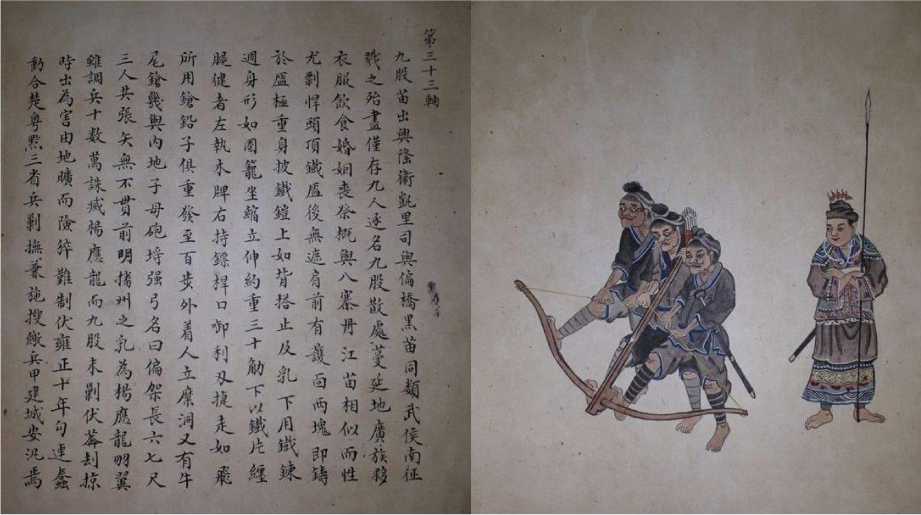 第三十三軸
九股苗出興隆衛凱里司與偏橋黑苗同類武侯南征
戮之殆盡僅存九人遂名九股散處蔓延地廣族夥
衣服飲食婚姻喪祭概與八寨丹江苗相似而性
尤剽悍頭頂鐵盔後無遮肩前有護面兩塊即鑄
於盔極重身披鐵鎧上如背搭止及乳下用鐵鍊
週身形如圈籠坐縮立伸約重三十觔下以鐵片纏
腿健者左執木牌右持鏢桿口啣利刄捷走如飛
所用鎗鉛子俱重發至百步外着人立糜洞又有牛
尾鎗幾與內地子母砲埒强弓名曰偏架長六七尺
三人共張矢無不貫前明播州之乱為楊應龍明翼
雖調兵十數萬誅滅楊應龍而九股未剿伏莽刦掠
時出為害由地曠而險猝難制伏雍正十年勾連蠢
動合楚粵黔三省兵剿撫兼施搜繳兵甲建城安汎焉